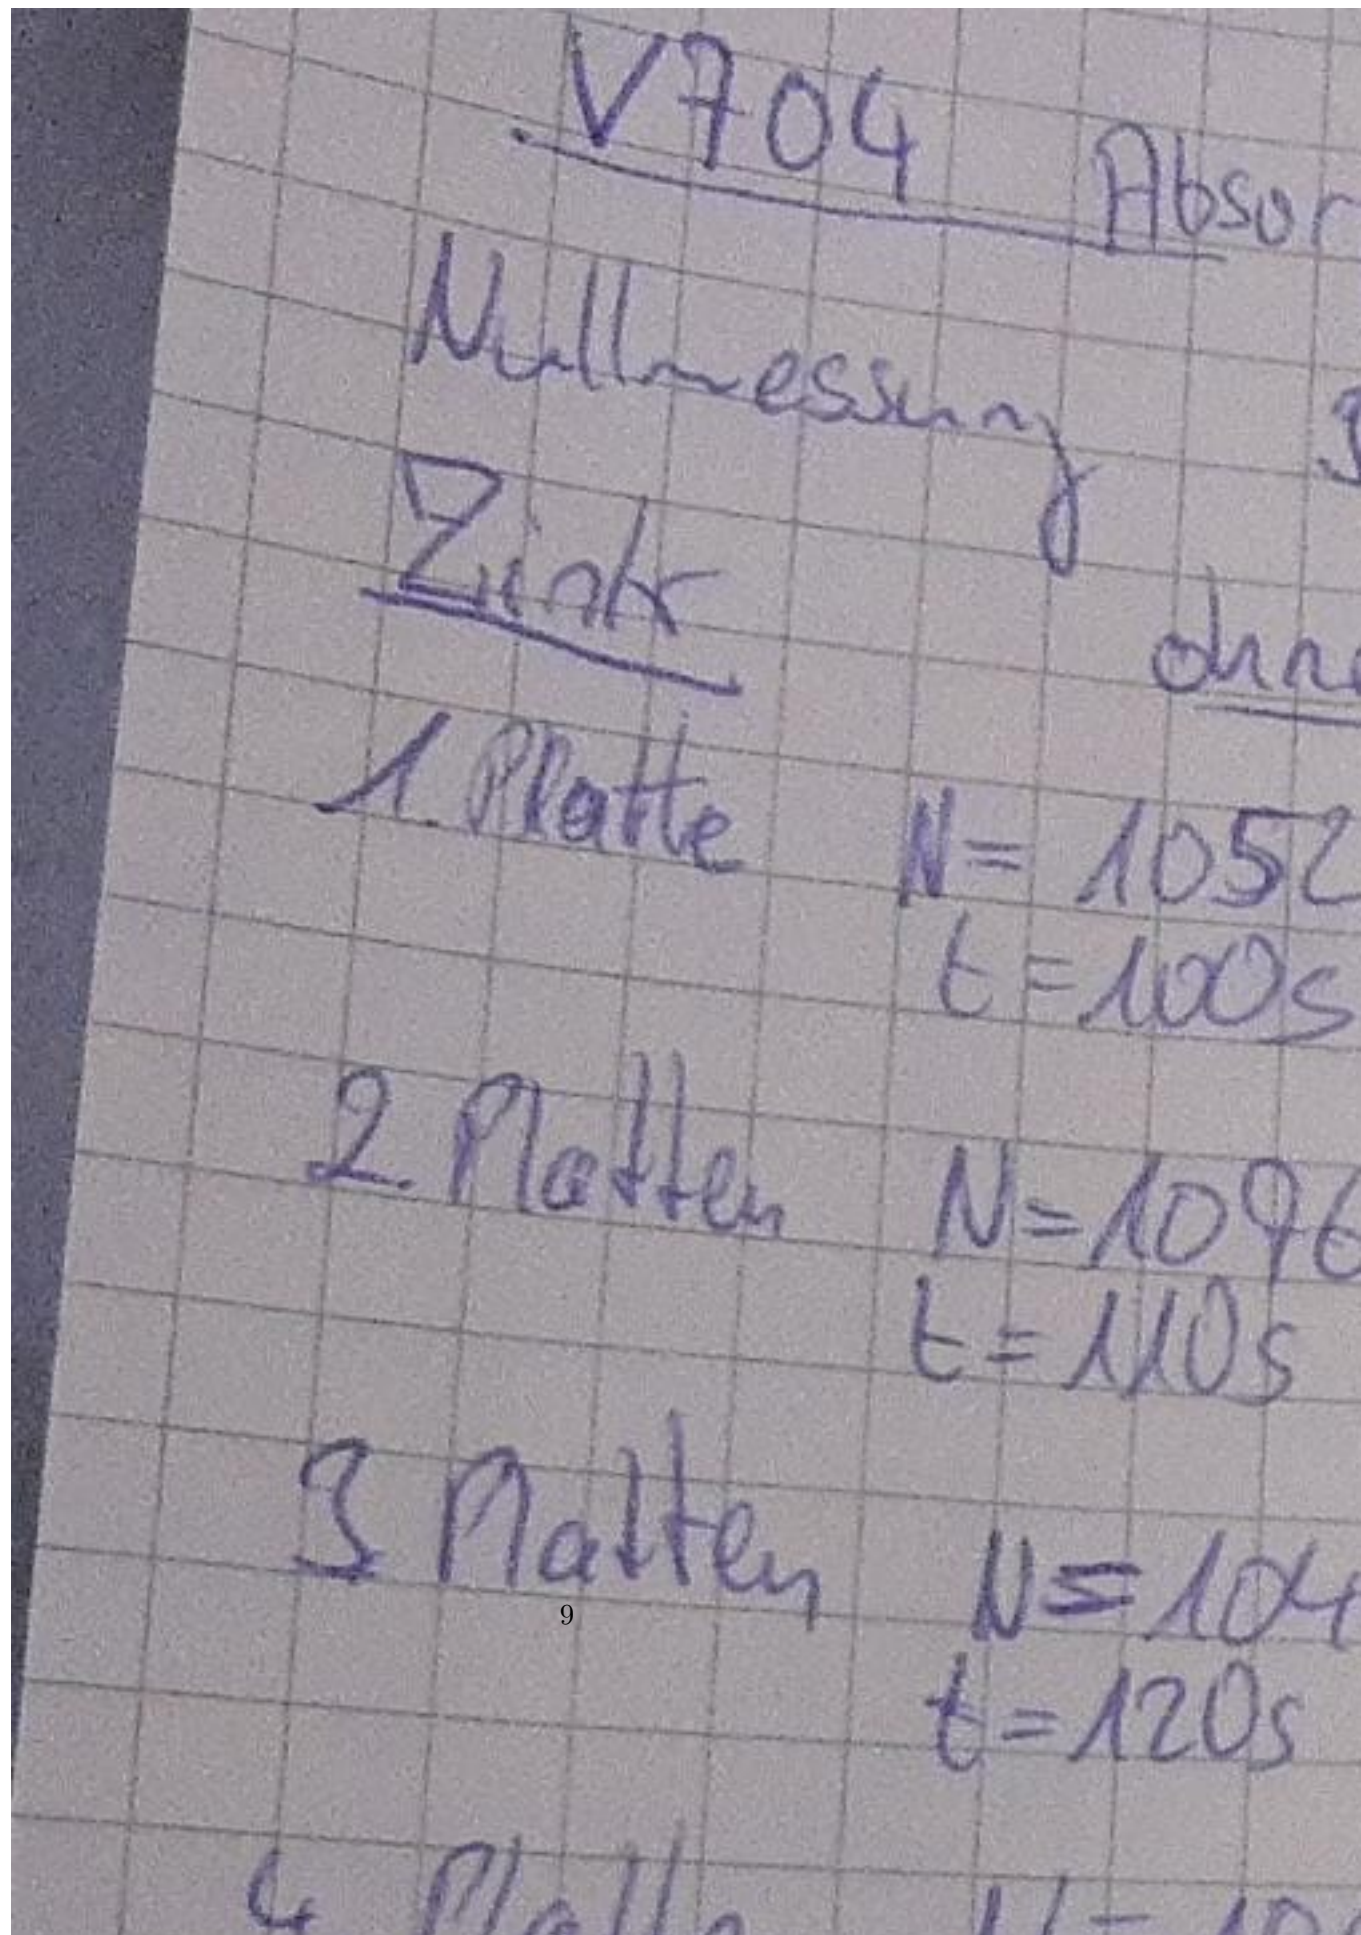 V704 Absor
Nullmessung
Zink ohne
1 Platte N = 1052
t = 100s
2 Platten N = 1096
t = 110s
3 Platten N = 104
9
t = 120s
4 Platte N = 10